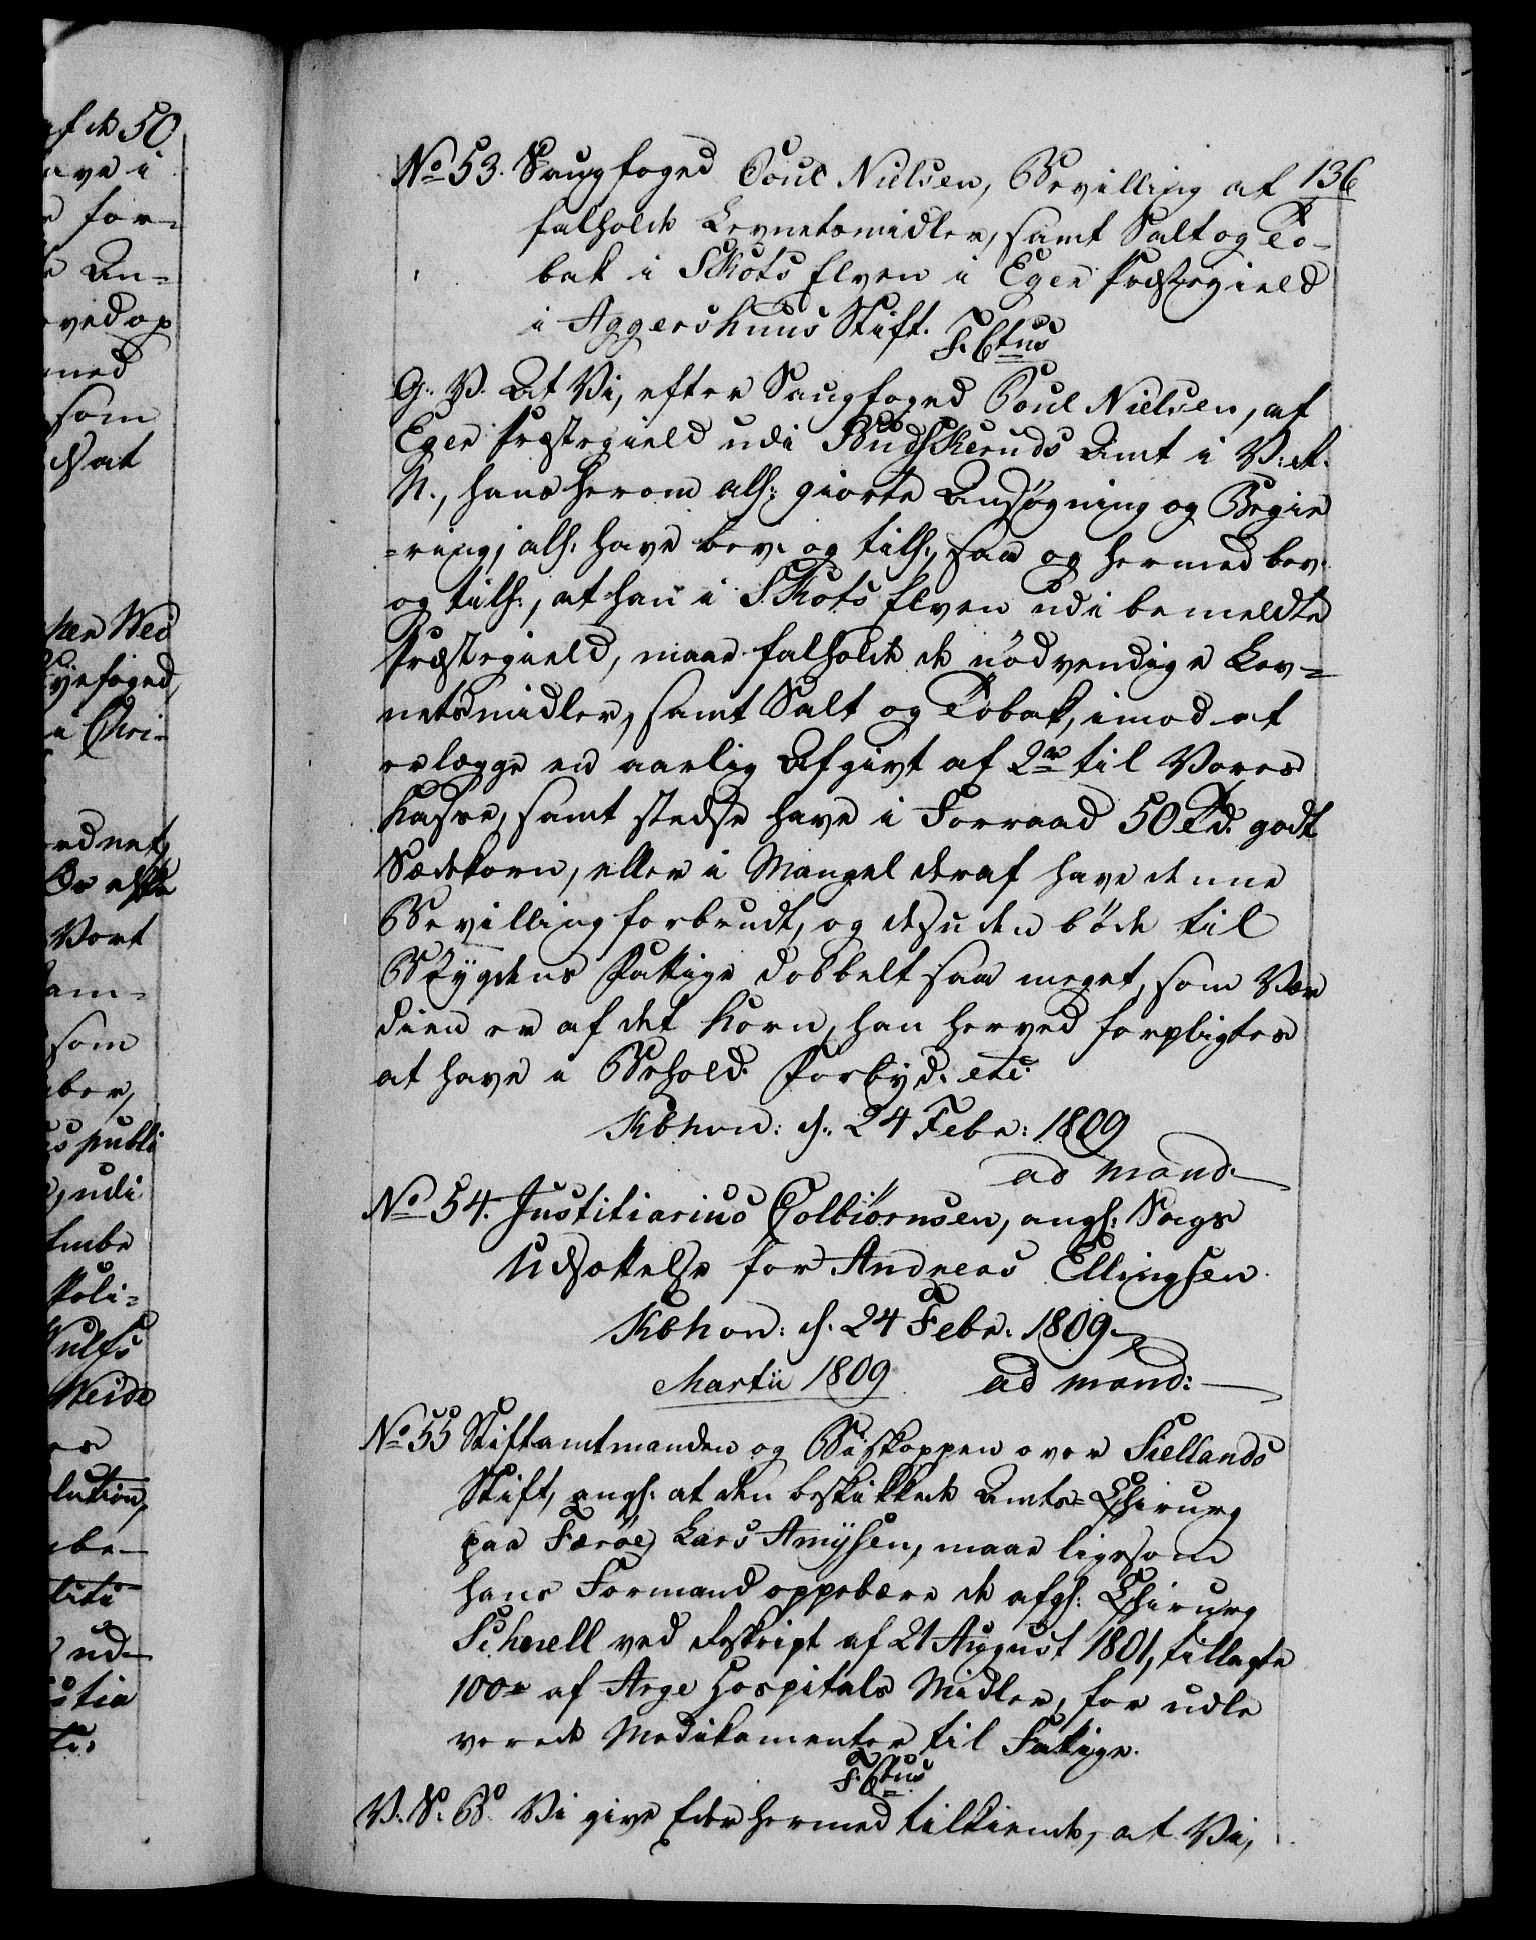 136
No 53. Saugfoged Poul Nielsen, Bevilling at
falholde Levnetsmidler, samt Salt og To-
bak i Skots Elven i Eger Præstegield
i Aggershuus Stift. F. 6tus
G. V. At Vi, efter Saugfoged Poul Nielsen, af
Eger Præstegield udi Budskeruds Amt i V: R.
N., hans herom alh: giorte Ansøgning og Begie
=ring, alh: have bev: og tilh:, saa og hermed bev:
og tilh:, at han i Skots Elven udi bemeldte
Præstegield, maae falholde de nödvendige Lev=
netsmidler, samt Salt og Tobak, imod at
erlægge en aarlig Afgivt af 2 rd til Vores
Kasse, samt stedse have i Forraad 50 Td. godt
Sædekorn, eller i Mangel deraf have denne
Bevilling forbrudt, og desuden böde til
Bÿgdens Fattige dobbelt saa meget, som Vær
dien er af det Korn, han herved forpligtes
at have i Behold. Forbyd. etc:
Kbhvn: d: 24 Febr: 1809
ad mand.
No 54. Justitiarius Colbiörnsen, angl: Sags
Udsættelse for Andreas Ellingsen.
Kbhvn: d. 24 Febr. 1809.
ad mand:
Martii 1809
No 55 Stiftamtmanden og Biskoppen over Siellands
Stift, angl: at den beskikkede Amts=Chirurg
paa Færöe, Lars Arnÿsen, maae ligesom
hans Formand oppebære de afg: Chirurg
Schnell ved Reskript af 21 August 1801, tillagte
100 rd af Arge Hospitals Midler, for udle
verede Medikamenter til Fattige.
F. 6tus
V. S. B. Vi give Eder hermed tilkiende, at Vi,